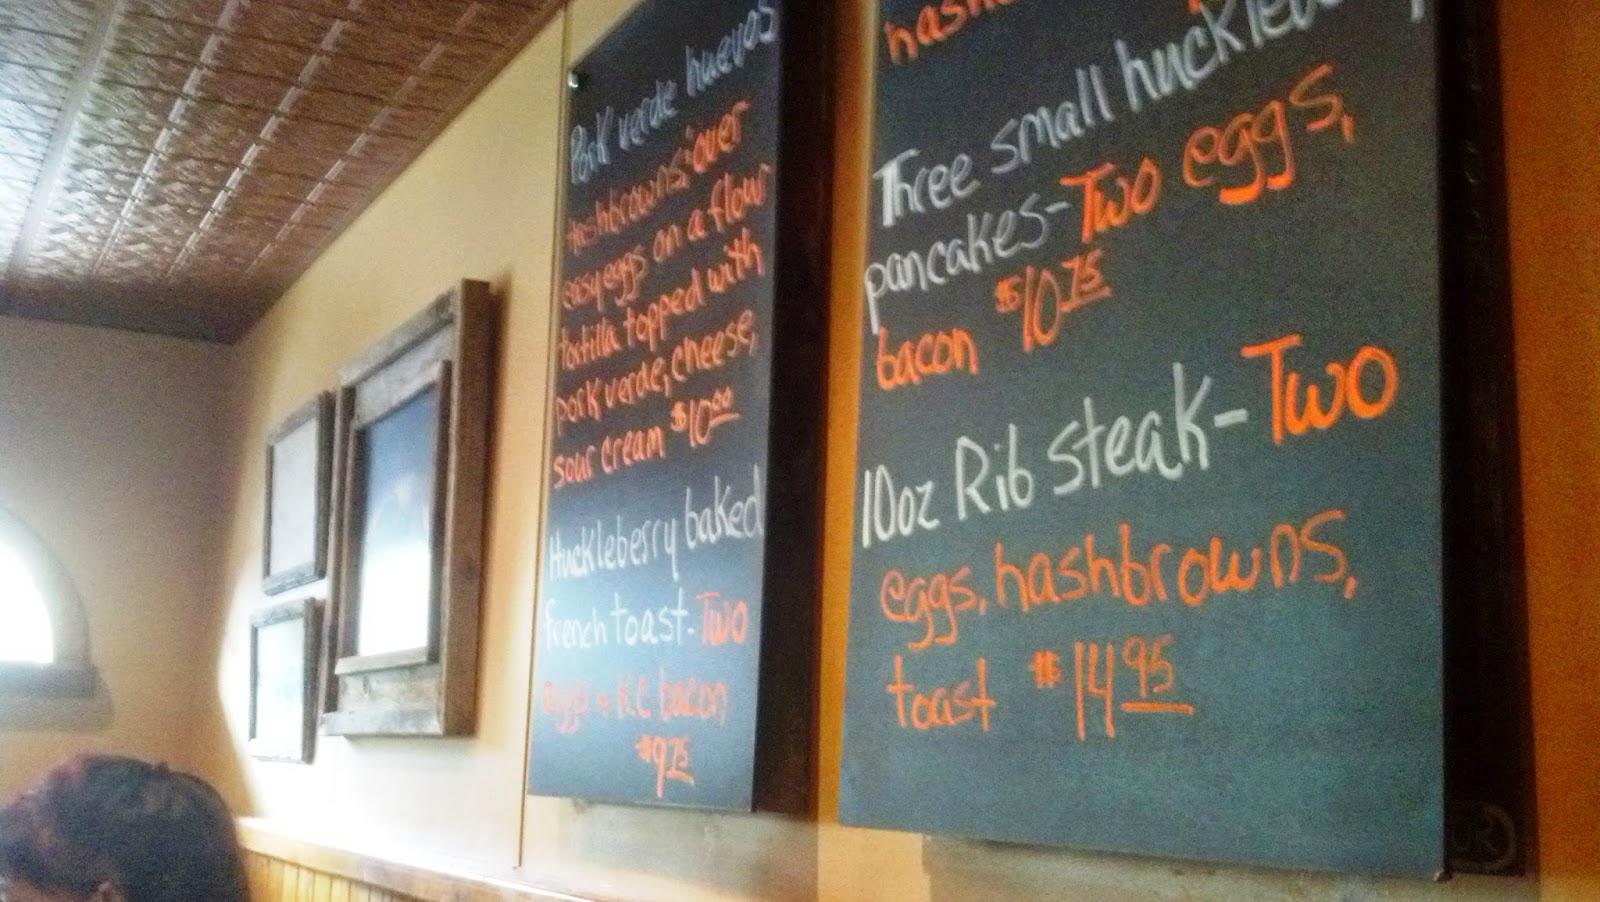 Pork verde huevos
Hashbrowns, over
easy eggs on a flour
tortilla topped with
pork verde, cheese,
sour cream $10.00
Huckleberry baked
french toast- Two
eggs + K.C bacon
$9.75
Three small
pancakes- Two eggs,
bacon $10.75
10oz Rib steak- Two
eggs, hashbrowns,
toast $14.95